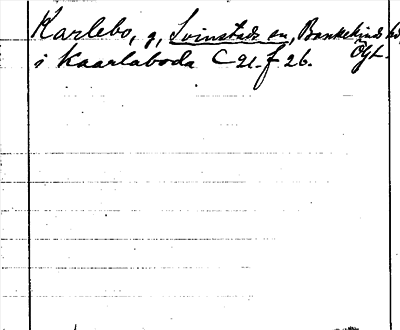 Karlebo, g, Svinstads sn, Bankekinds hd,
i Kaarlaboda C 21 f 26. Ögtl.